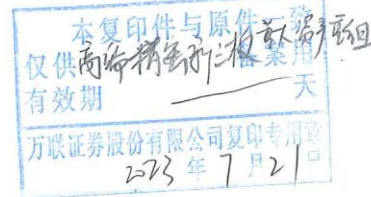 本复印件与原件一致
仅供 备案用
有效期 天
万联证券股份有限公司复印专用章
2023年7月21日